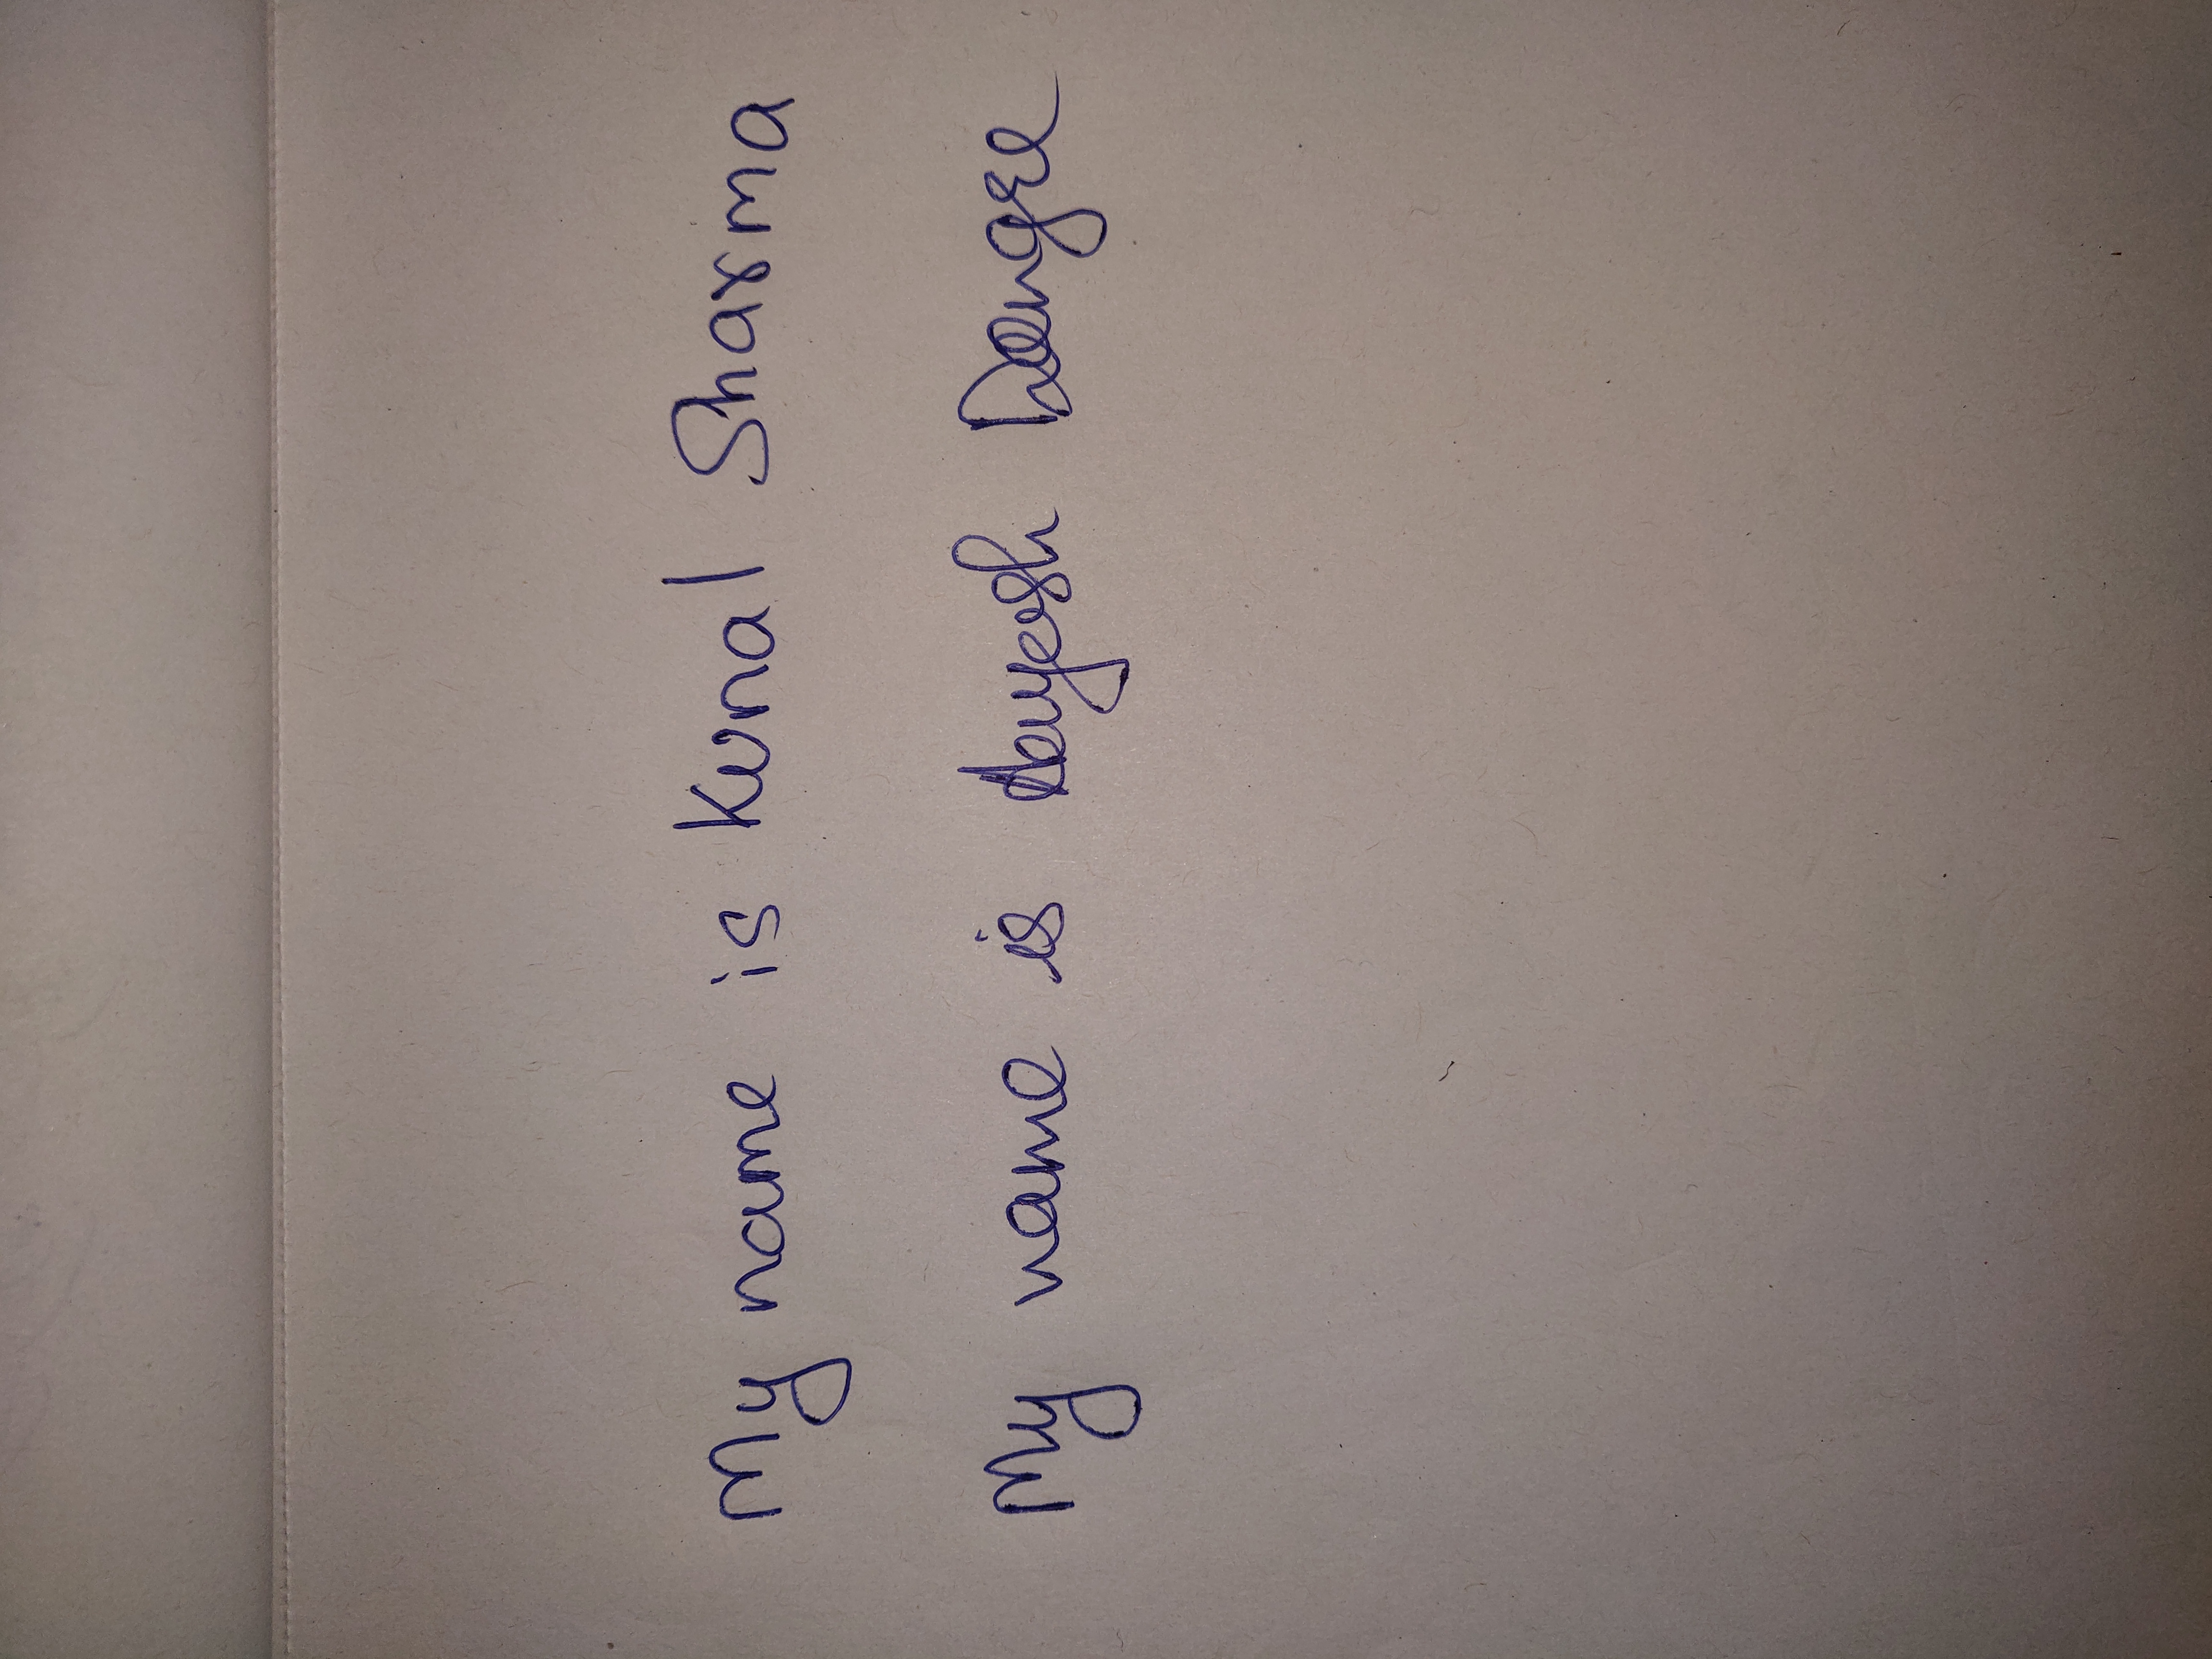 My name is Kunal Sharma
My name is Aayash Dongre